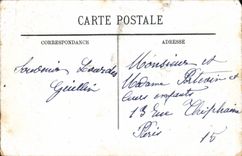 CARTE POSTALE
CORRESPONDANCE
ADRESSE
Souvenir Lourdes
Guillin
Monsieur et
Madame et
leurs enfants
13 Rue Théophraste
Paris
15